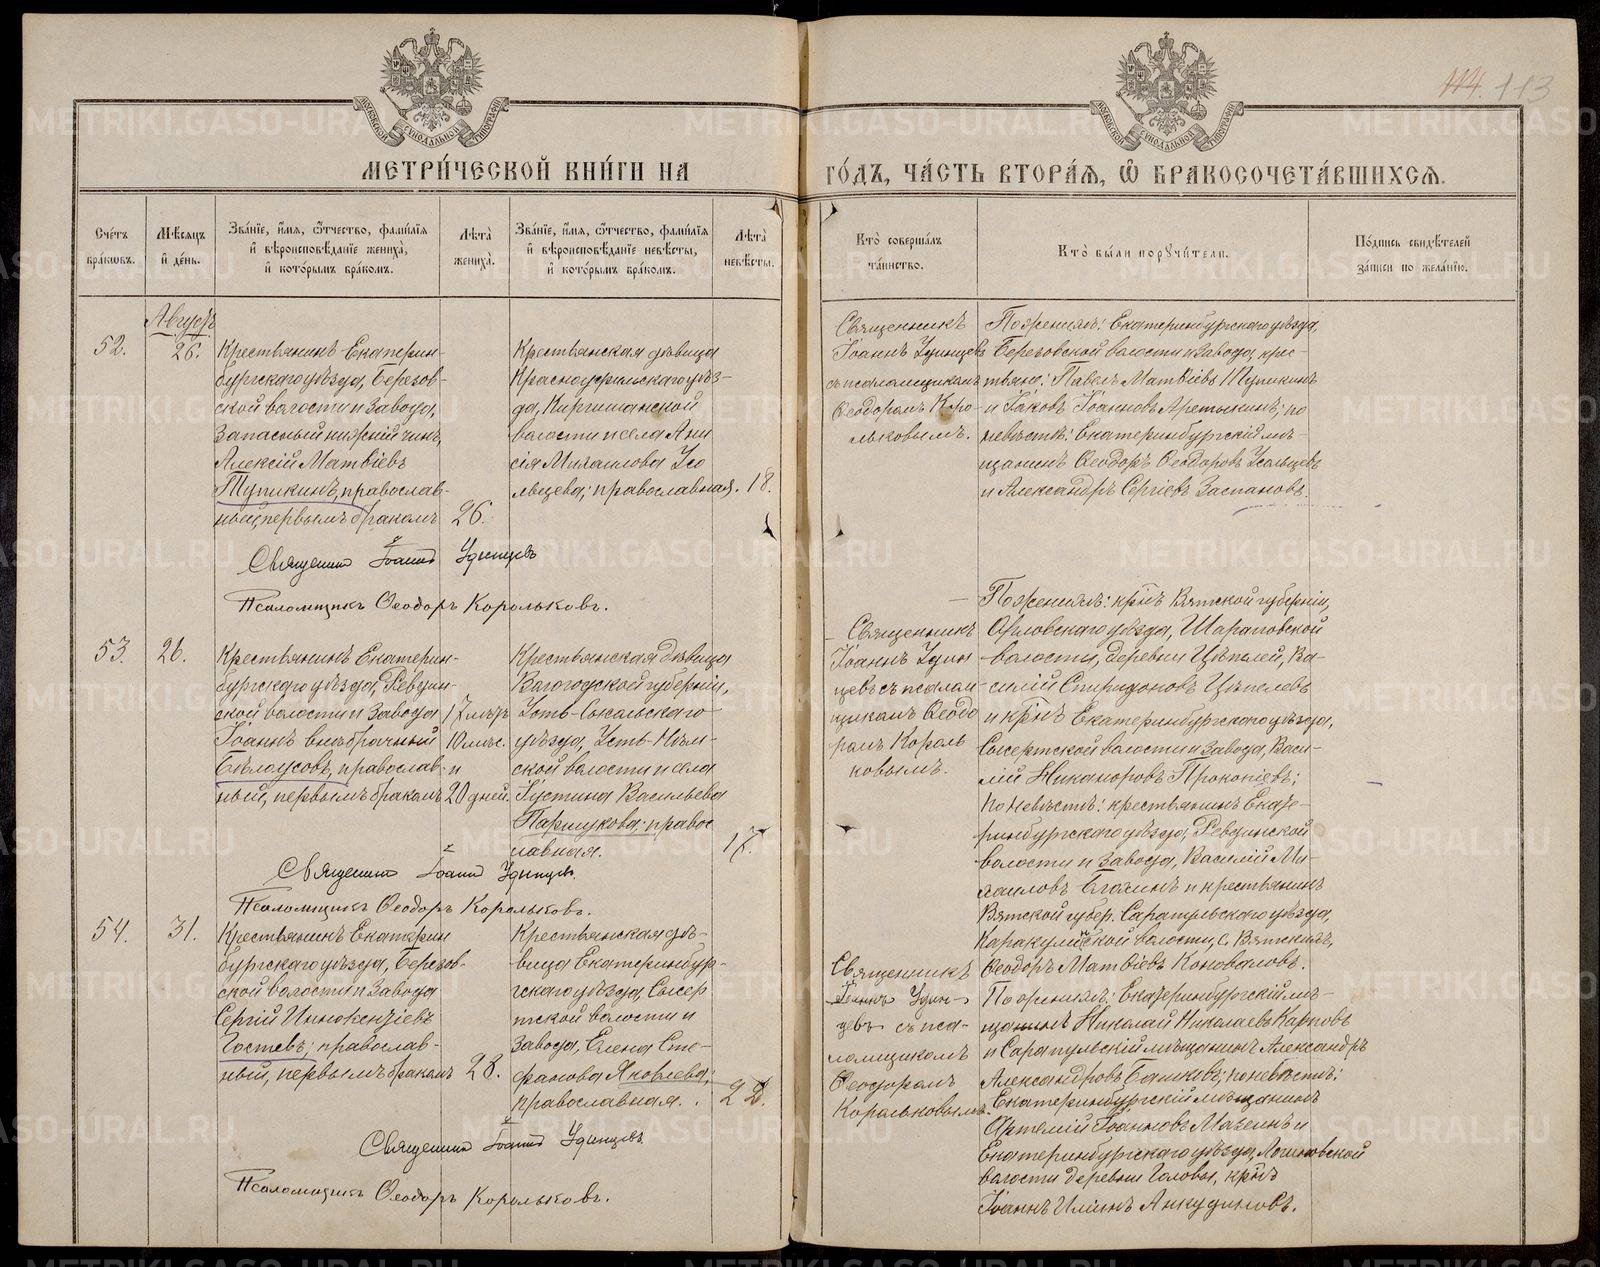 114. 113
МЕТРИ́ЧЕСКОЙ КНИ́ГИ НА ГО́ДЪ, ЧА́СТЬ ВТОРА́Я, Ѽ БРАКОСОЧЕТА́ВШИХСЯ.
МОСКОВСКОЙ СУНОДАЛЬНОЙ ТИПОГРАФІИ
МОСКОВСКОЙ СУНОДАЛЬНОЙ ТИПОГРАФІИ
Сче́тъ
бра́ковъ.
Мѣ́сяцъ
и҆ де́нь.
Зва́нїе, и҆́мя, ѻ҆́тчество, фами́лїя
и҆ вѣроисповѣ́данїе жениха̀,
и҆ кото́рымъ бра́комъ.
Лѣ́та
жениха̀.
Зва́нїе, и҆́мя, ѻ҆́тчество, фами́лїя
и҆ вѣроисповѣ́данїе невѣ́сты,
и҆ кото́рымъ бра́комъ.
Лѣ́та
невѣ́сты.
Кто̀ соверша́лъ
та́инство.
Кто̀ бы́ли порꙋчи́тели.
По́дпись свидѣ́телей
за́писи по жела́нїю.
Августъ
52.
26.
Крестьянинъ Екатерин-
бургскаго уѣзда, Березов-
ской волости и завода,
запасный нижній чинъ,
Алексій Матвіевъ
Тупикинъ, православ-
ный, первымъ бракомъ
26.
Крестьянская дѣвица
Красноуфимскаго уѣз-
да, Киргишанской
волости и села Ани
сія Михаилова Усо
льцева, православная.
18.
Священникъ
Іоаннъ Удинцевъ
съ псаломщикомъ
Ѳеодоромъ Коро-
льковымъ.
По женихѣ: Екатеринбургскаго уѣзда,
Березовской волости и завода, крес-
тьяне: Павелъ Матвіевъ Тупикинъ
и Іаковъ Іоанновъ Аретыкинъ; по
невѣстѣ: Екатеринбургскій мѣ-
щанинъ Ѳеодоръ Ѳеодоровъ Усольцевъ
и Александръ Сергіевъ Заспановъ.
Священникъ Іоаннъ Удинцевъ
Псаломщикъ Ѳеодоръ Корольковъ.
53.
26.
Крестьянинъ Екатерин-
бургскаго уѣзда, Ревдин-
ской волости и завода
Іоаннъ внѣбрачный
Бѣлоусовъ, православ-
ный, первымъ бракомъ
17 лѣтъ
10 мѣс.
и
20 дней.
Крестьянская дѣвица
Вологодской губерніи,
Усть-Сысольскаго
уѣзда, Усть-Нем-
ской волости и села
Іустина Васильева
Паршукова, правос
лавная.
17.
Священникъ
Іоаннъ Удин
цевъ съ псалом-
щикомъ Ѳеодо
ромъ Король
ковымъ.
По женихѣ: кр-нъ Вятской губерніи,
Орловскаго уѣзда, Шараповской
волости, деревни Цѣпелей, Ва-
силій Спиридоновъ Цѣпелевъ
и кр-нъ Екатеринбургскаго уѣзда,
Сысертской волости и завода, Васи-
лій Никаноровъ Прокопіевъ;
по невѣстѣ: крестьянинъ Екате-
ринбургскаго уѣзда, Ревдинской
волости и завода, Василій Ми-
хаиловъ и крестьянинъ
Вятской губер. Сарапульскаго уѣзда,
Каракулинской волости, с. Вятскихъ,
Ѳеодоръ Матвіевъ Коноваловъ.
Священникъ Іоаннъ Удинцевъ.
Псаломщикъ Ѳеодоръ Корольковъ.
54.
31.
Крестьянинъ Екатерин
бургскаго уѣзда, Березов-
ской волости и завода
Сергій Иннокентіевъ
Гостевъ, православ-
ный, первымъ бракомъ
28.
Крестьянская дѣ-
вица Екатеринбур-
гскаго уѣзда, Сысер
тской волости и
завода, Елена Сте-
фанова Яковлева,
православная.
22.
Священникъ
Іоаннъ Удин-
цевъ съ пса-
ломщикомъ
Ѳеодоромъ
Корольковымъ.
По женихѣ: Екатеринбургскій мѣ-
щанинъ Николай Николаевъ Карповъ
и Сарапульскій мѣщанинъ Александръ
Александровъ Башковъ; по невѣстѣ:
Екатеринбургскій мѣщанинъ
Артемій Іоанновъ Мазеинъ и
Екатеринбургскаго уѣзда, Логиновской
волости деревни Головы, кр-нъ
Іоаннъ Илиинъ Анкудиновъ.
Священникъ Іоаннъ Удинцевъ
Псаломщикъ Ѳеодоръ Корольковъ.
METRIKI.GASO-URAL.RU